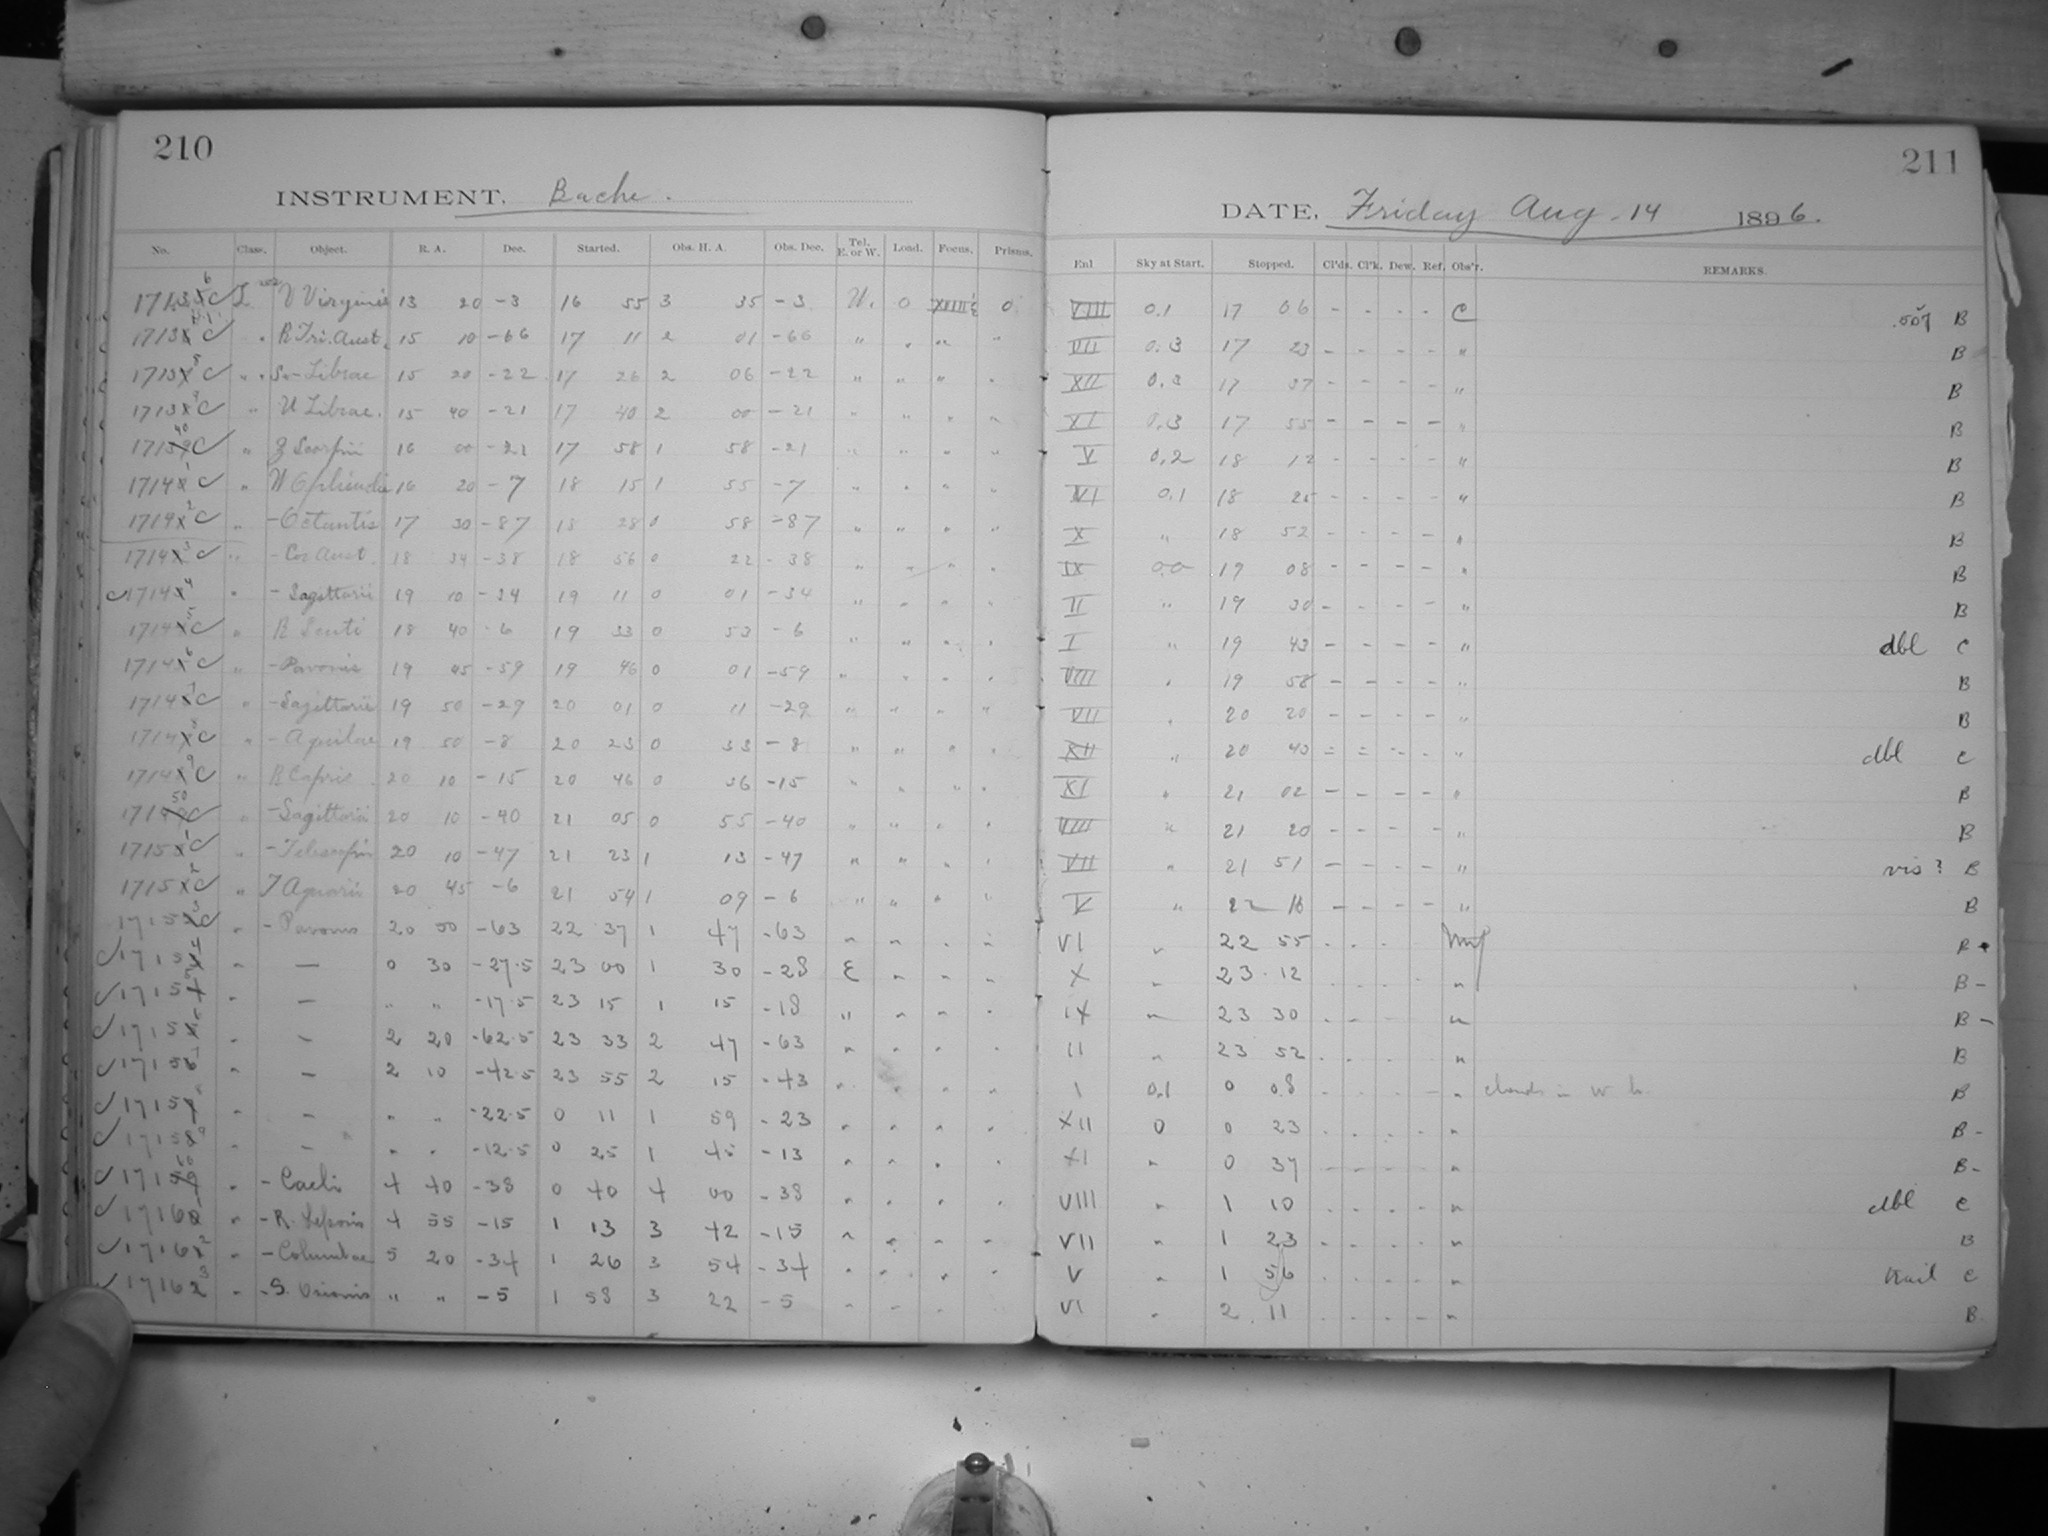 210
INSTRUMENT. Bache.
No. Class. Object. R. A. Dec. Started. Obs. H. A. Obs. Dec. Tel. E. or W. Load. Focus. Prisms.
L V Virginis 13 20 -3 16 55 3 35 -3 W. 0 0
17137 C " R Tri. Aust. 15 10 -66 17 11 2 01 -66 " " " "
17138 C " Librae 15 20 -22 17 26 2 06 -22 " " " "
17139 C " U Librae. 15 40 -21 17 40 2 00 -21 " " " "
17140 C " Z Scorpii 16 00 -21 17 58 1 58 -21 " " " "
17141 C " W Ophiuchi 16 20 -7 18 15 1 55 -7 " " " "
17142 C " -Octantis 17 30 -87 18 28 0 58 -87 " " " "
17143 C " -Cor Aust. 18 34 -38 18 56 0 22 -38 " " " "
17144 " -Sagittarii 19 10 -34 19 11 0 01 -34 " " " "
17145 C " R Scuti 18 40 -6 19 33 0 53 -6 " " " "
17146 C " -Pavonis 19 45 -59 19 46 0 01 -59 " " " "
17147 C " -Sagittarii 19 50 -29 20 01 0 11 -29 " " " "
17148 C " -Aquilae 19 50 -8 20 23 0 33 -8 " " " "
17149 C " R Capric 20 10 -15 20 46 0 36 -15 " " " "
17150 C " -Sagittarii 20 10 -40 21 05 0 55 -40 " " " "
17151 C " -Telescopii 20 10 -47 21 23 1 13 -47 " " " "
17152 C " T Aquarii 20 45 -6 21 54 1 09 -6 " " " "
17153 C " -Pavonis 20 50 -63 22 37 1 47 -63 " " " "
17154 " — 0 30 -27.5 23 00 1 30 -28 E " " "
17155 " — " " -17.5 23 15 1 15 -18 " " " "
17156 " — 2 20 -62.5 23 33 2 47 -63 " " " "
17157 " — 2 10 -42.5 23 55 2 15 -43 " " " "
17158 " — " " -22.5 0 11 1 59 -23 " " " "
17159 " — " " -12.5 0 25 1 45 -13 " " " "
17160 " -Caeli 4 40 -38 0 40 4 00 -38 " " " "
17161 " -R. Leporis 4 55 -15 1 13 3 42 -15 " " " "
17162 " -Columbae 5 20 -34 1 26 3 54 -34 " " " "
17163 " -S. Orionis " " -5 1 58 3 22 -5 " " "
211
DATE. Friday Aug. 14 1896.
Enl Sky at Start. Stopped. Cl'ds. Cl'k. Dew. Ref. Obs'r. REMARKS.
VIII 0.1 17 06 - - - - C B
VII 0.3 17 23 - - - - " B
XII 0.3 17 37 - - - - " B
XI 0.3 17 55 - - - - " B
V 0.2 18 12 - - - - " B
VI 0.1 18 25 - - - - " B
X " 18 52 - - - - " B
IX 0.0 19 08 - - - - " B
II " 19 30 - - - - " B
I " 19 43 - - - - " dbl C
VIII " 19 58 - - - - " B
VII " 20 20 - - - - " B
XII " 20 43 - - - - " dbl C
XI " 21 02 - - - - " B
VIII " 21 20 - - - - " B
VII " 21 51 - - - - " vis? B
V " 22 16 - - - - " B
VI " 22 55 - - - B
X " 23 12 - - - - " B-
IX " 23 30 - - - - " B-
II " 23 52 - - - - " B
I 0.1 0 08 - - - - " clouds in W B
XII 0 0 23 - - - - " B-
XI " 0 37 - - - - " B-
VIII " 1 10 - - - - " dbl C
VII " 1 23 - - - - " B
V " 1 56 - - - - " trail C
VI " 2 11 - - - - " B